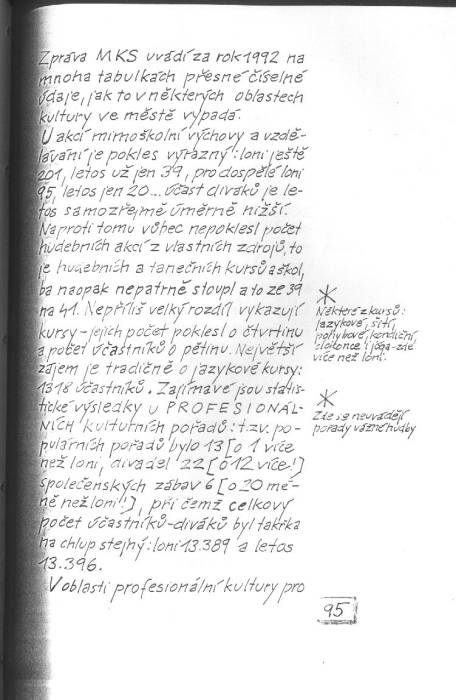 Zpráva MKS uvádí za rok 1992 na
mnoha tabulkách přesné číselné
údaje, jak to v některých oblastech
kultury ve městě vypadá.
U akcí mimoškolní výchovy a vzdě-
lávání je pokles výrazný: loni ještě
201, letos už jen 39, pro dospělé loni
95, letos jen 20... Účast diváků je le-
tos samozřejmě úměrně nižší.
Naproti tomu vůbec nepoklesl počet
hudebních akcí z vlastních zdrojů, to
je hudebních a tanečních kursů a škol,
ba naopak nepatrně stoupl a to ze 39
na 41. Nepříliš velký rozdíl vykazují
kursy - jejich počet poklesl o čtvrtinu
a počet účastníků o pětinu. Největší
zájem je tradičně o jazykové kursy:
1318 účastníků. Zajímavé jsou statis-
tické výsledky u PROFESIONÁL-
NÍCH kulturních pořadů: tzv. po-
pulárních pořadů bylo 13 [o 1 více
než loni, divadel 22 [o 12 více!]
společenských zábav 6 [o 20 mé-
ně než loni!!], při čemž celkový
počet účastníků-diváků byl takřka
na chlup stejný: loni 13.389 a letos
13.396.
V oblasti profesionální kultury pro
*
Některé z kursů:
jazykové, šití,
pohybové, kondiční,
i jóga - zde
více než loni.
*
Zde se neuvádějí
pořady vážné hudby
95